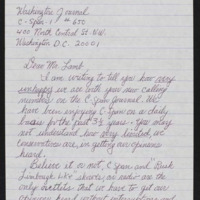 Washington Journal
C-Span-1 # 650
400 North Central St. N.W.
Washington D.C. 20001
Dear Mr. Lamb
I am writing to tell you how very
we are with your new calling
numbers on the C-Span Journal. We
have been enjoying C-Span on a daily
basis for the past 3½ years. You may
not understand how very limited, we
conservatives are, in getting our opinions
heard.
Believe it or not, C-Span and Rush
Limbaugh like shows, on radio are the
only outlets that we have to get our